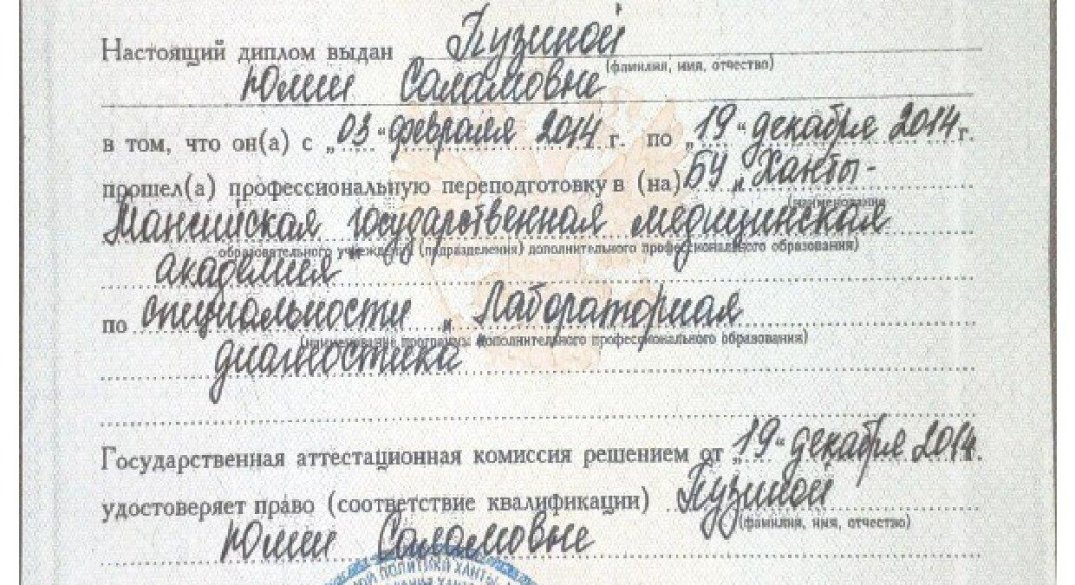 Настоящий диплом выдан Пузиной
(фамилия, имя, отчество)
Юлии Саламовне
в том, что он(а) с „03" февраля 2014 г. по „19" декабря 2014 г.
прошел(а) профессиональную переподготовку в (на) БУ „Ханты-
(наименование
Мансийская государственная медицинская
образовательного учреждения (подразделения) дополнительного профессионального образования)
академия"
по специальности „Лабораторная
(наименование программы дополнительного профессионального образования)
диагностика
Государственная аттестационная комиссия решением от „19" декабря 2014.
удостоверяет право (соответствие квалификации) Пузиной
(фамилия, имя, отчество)
Юлии Саламовне
ПОЛИТИКИ ХАНТЫ